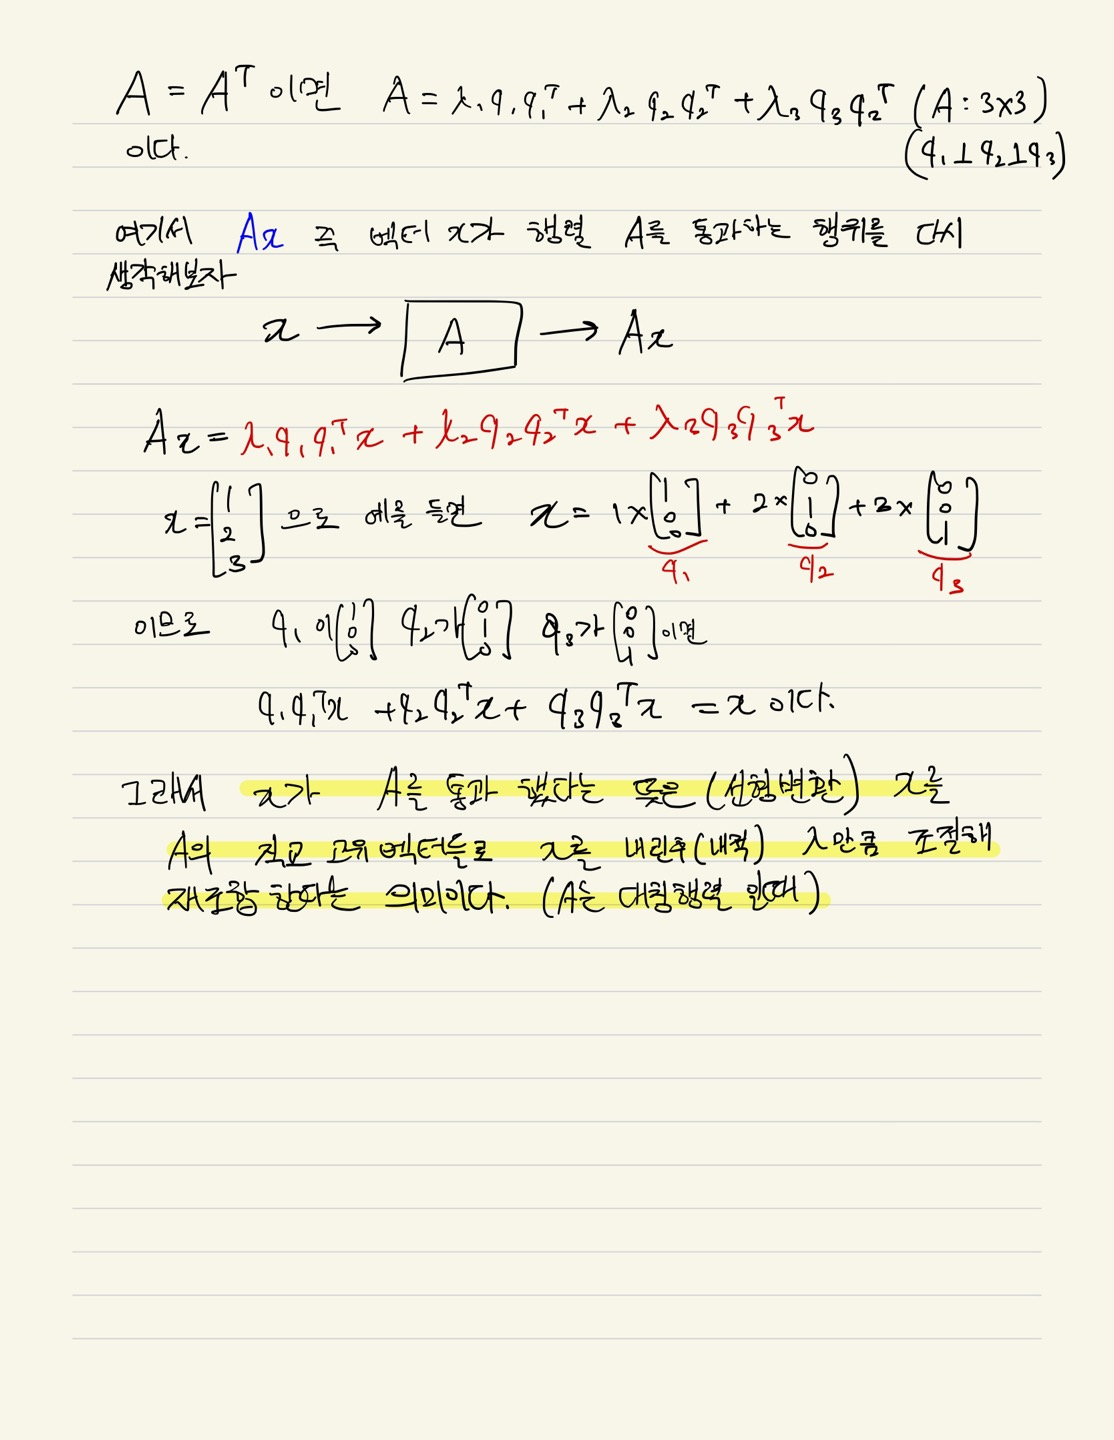 A = Aᵀ 이면 A = λ₁q₁q₁ᵀ + λ₂q₂q₂ᵀ + λ₃q₃q₂ᵀ (A : 3x3)
이다. (q₁⊥q₂⊥q₃)
여기서 Ax 즉 벡터 x가 행렬 A를 통과하는 행위를 다시
생각해보자
x → A → Ax
Ax = λ₁q₁q₁ᵀx + λ₂q₂q₂ᵀx + λ₃q₃q₃ᵀx
x = [1 2 3] 으로 예를 들면 x = 1×[1 0 0] + 2×[0 1 0] + 3×[0 0 1]
q₁ q₂ q₃
이므로 q₁이[1 0 0] q₂가[0 1 0] q₃가[0 0 1]이면
q₁q₁ᵀx + q₂q₂ᵀx + q₃q₃ᵀx = x 이다.
그래서 x가 A를 통과 했다는 뜻은 (선형변환) x를
A의 직교 고유벡터들로 x를 내린후(내적) λ만큼 조절해
재조합 한다는 의미이다. (A는 대칭행렬 일때)